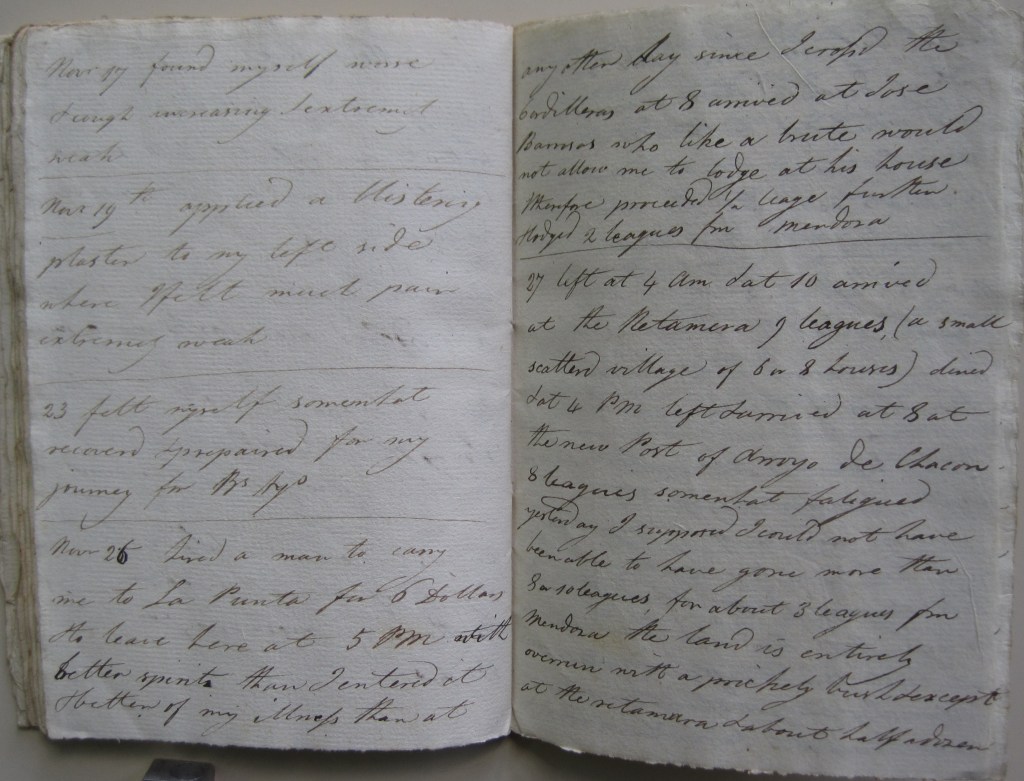 Novr 17 found myself worse
cough increasing & extremely
weak
Novr 19th applied a blistering
plaster to my left side
where I felt much pain
extremely weak
23 felt myself somewhat
recoverd & prepaired for my
journey for Bs Ays
Novr 26 hired a man to carry
me to La Punta for 6 Dollars
& to leave here at 5 PM with
better spirits than I entered it
& better of my illness than at
any other day since I crossd the
Cordilleras at 8 arrived at Jose
who like a brute would
not allow me to lodge at his house
therefore proceeded 1/2 leage further
& lodged 2 leagues fm Mendoza
27 left at 4 am & at 10 arrived
at the Retamera 9 leagues, (a small
scatterd village of 6 or 8 houses) dined
& at 4 PM left & arrived at 8 at
the new Post of Arroyo de Chacon
8 leagues somewhat fatigued
yesterday I supposed I could not have
been able to have gone more than
8 or 10 leagues, for about 3 leagues fm
Mendoza the land is entirely
overrun with a prickely bush & except
at the retamera & about half a dozen